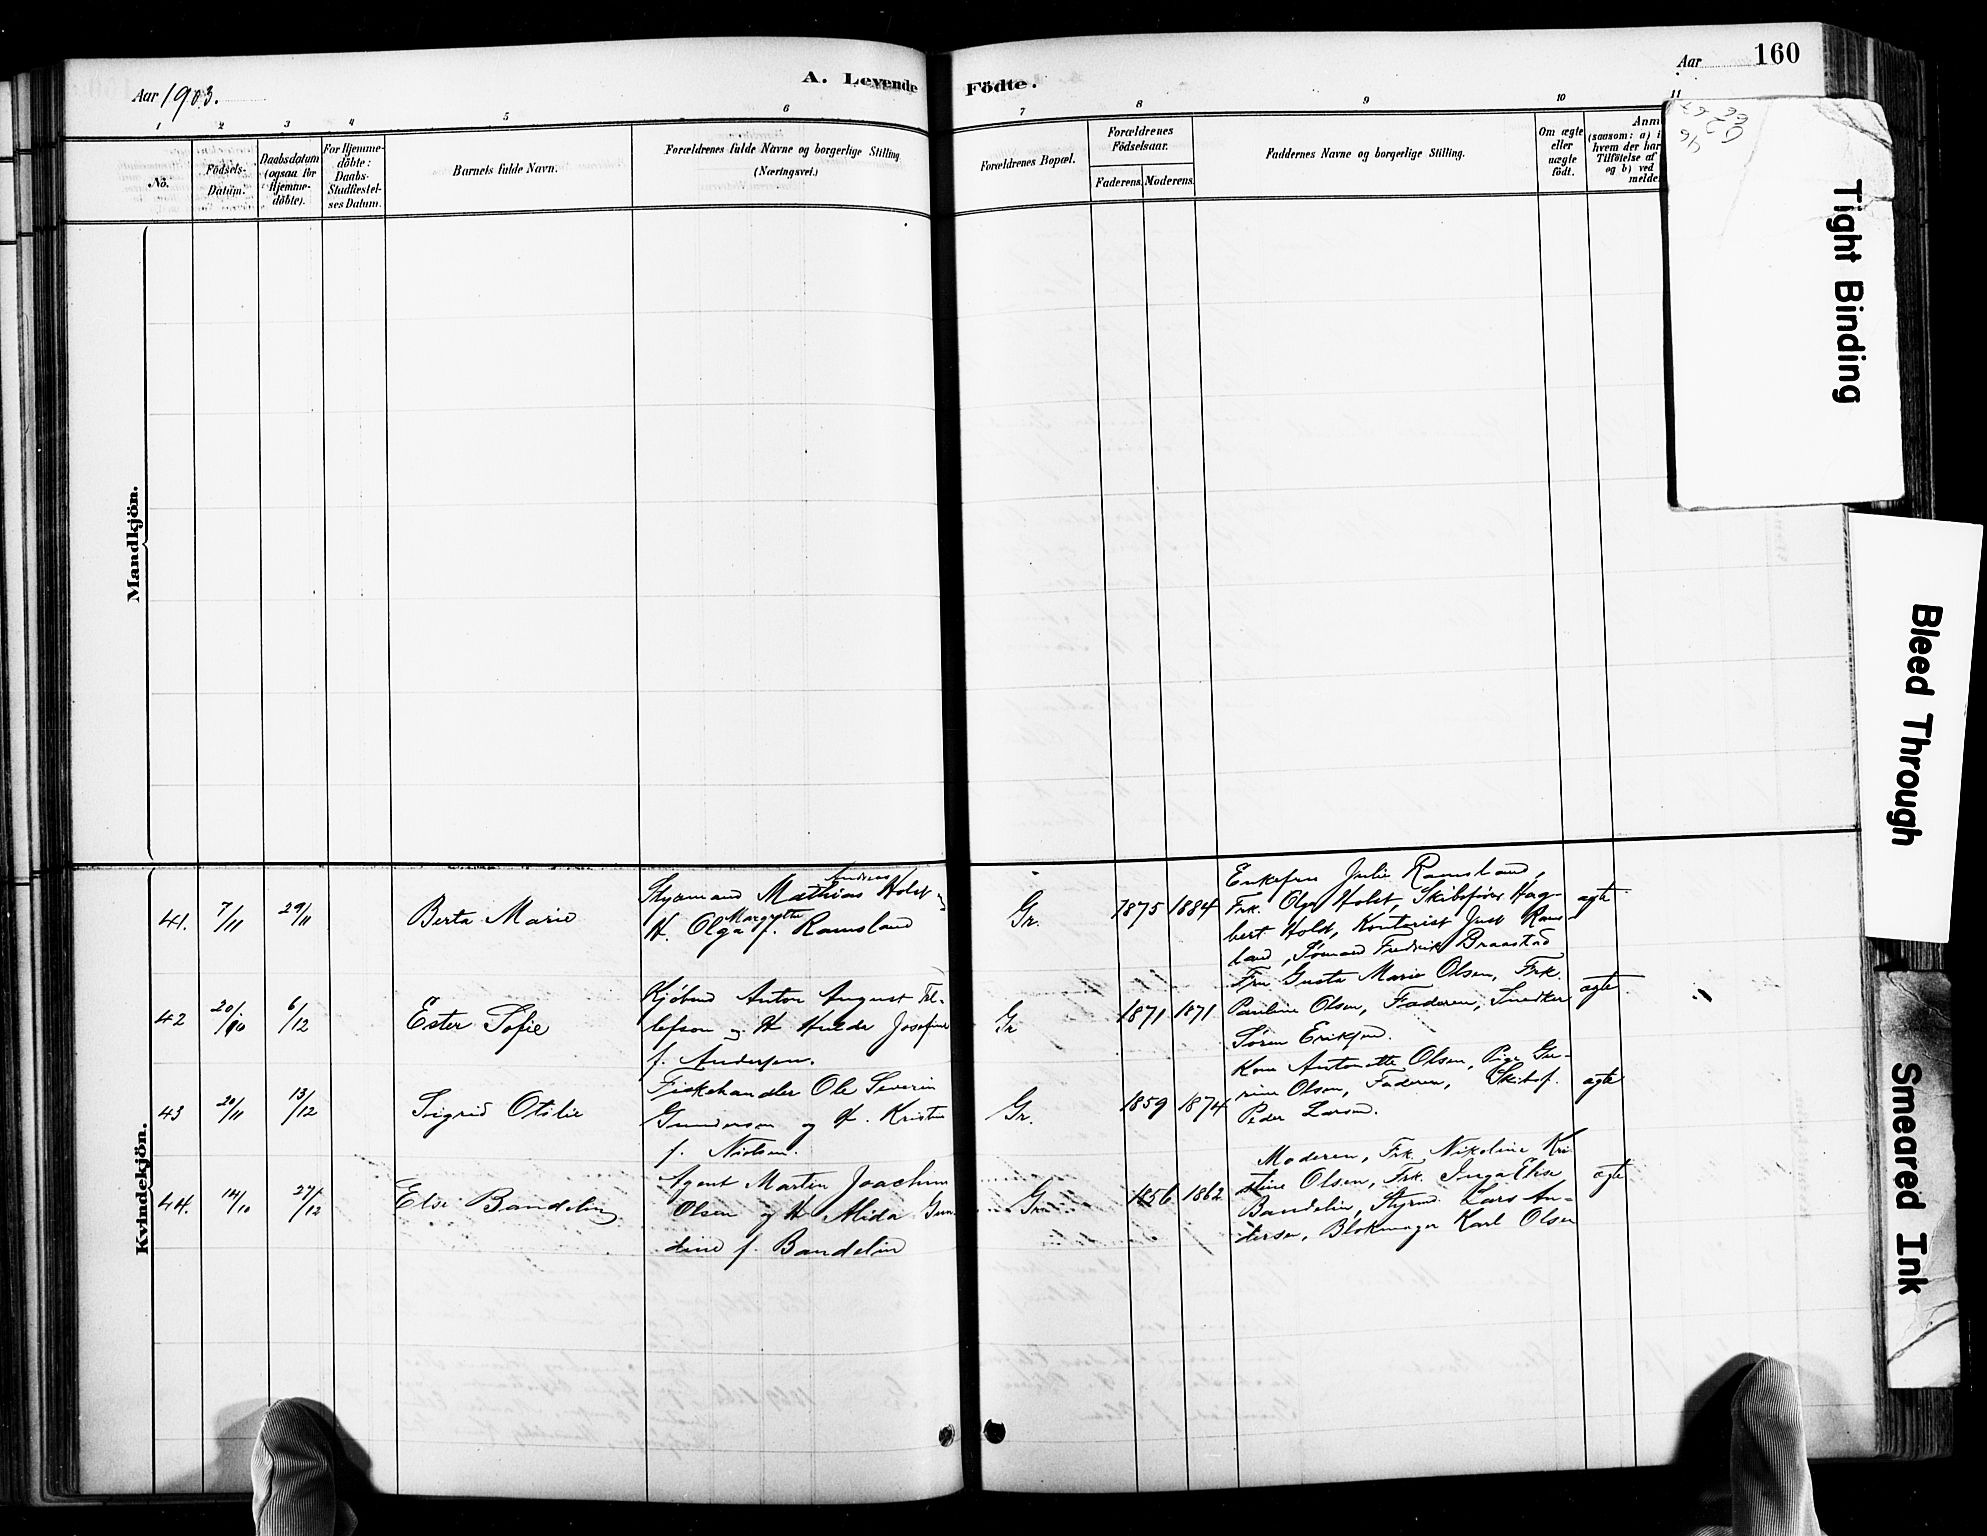 A. Levende Födte.
Aar 1903.
Aar 160
1 2 3 4 5 6 7 8 9 10 11
No.
Födsels-
Datum.
Daabsdatum
(ogsaa for
Hjemme-
döbte).
For Hjemme-
döbte:
Daabs-
Stadfæstel-
ses Datum.
Barnets fulde Navn.
Forældrenes fulde Navne og borgerlige Stilling
(Næringsvei.)
Forældrenes Bopæl.
Forældrenes
Födselsaar.
Faderens. Moderens.
Faddernes Navne og borgerlige Stilling.
Om ægte
eller
uægte
födt.
Anm
(saasom: a) i
hvem der har
Tilföielse af
og b) ved
melde
Mandkjön.
Kvindekjön.
41. 7/11 29/11
Berta Marie
Andreas
Styrmand Mathias Holst og
Margrethe
H. Olga f. Ramsland
Gr.
1875 1884
Enkefru Julie Ramsland,
Frk. Olga Holst, Skibsfører Hag-
bert Holst, Kontorist Just Rams-
land, Sømand Fredrik Braastad
ægte
42 20/10 6/12
Ester Sofie
Kjøbmd Anton August Tel-
lefsen og H Hulda Josefine
f. Andersen.
Gr
1871 1871
Fru Gusta Marie Olsen, Frk.
Pauline Olsen, Faderen, Snedker
Søren Eriksen.
ægte
43 20/11 13/12
Sigrid Otilie
Fiskehandler Ole Severin
Gundersen og H. Kristine
f. Nielsen.
Gr.
1859 1874
Kone Antonette Olsen, Pige Gu-
rine Olsen, Faderen, Skibsf.
Peder Larsen.
ægte
44. 14/10 27/12
Else Bandelin
Agent Martin Joachim
Olsen og H Alida Gun-
dine f. Bandelin
Gr.
1856 1862
Moderen, Frk. Nikoline Kri-
stine Olsen, Frk. Inga Elise
Bandelin, Styrmd. Lars An-
dersen, Blokmager Karl Olsen
ægte
Tight Binding
Bleed Through
Smeared Ink